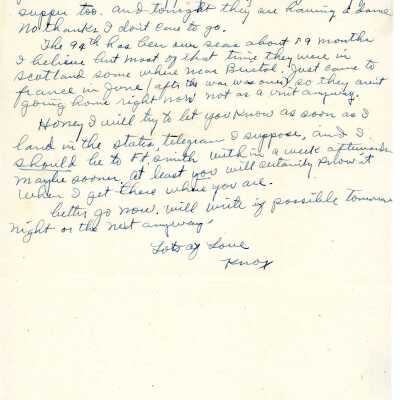 supper too. and tonight they are having a dance
No thanks I don't care to go.
The 94th has been over seas about 19 months
I believe but most of that time they were in
Scotland some where near Bristol. Just came to
france in June (after the war was over) so they aren't
going home right now not as a unit anyway.
Honey I will try to let you know as soon as I
land in the states, telegram I suppose, and I
should be to Ft. Smith with in a week afterwards
maybe sooner, at least you will certainly know it
when I get there where you are.
better go now. will write if possible tomorrow
night or the next anyway.
Lots of Love
Knox